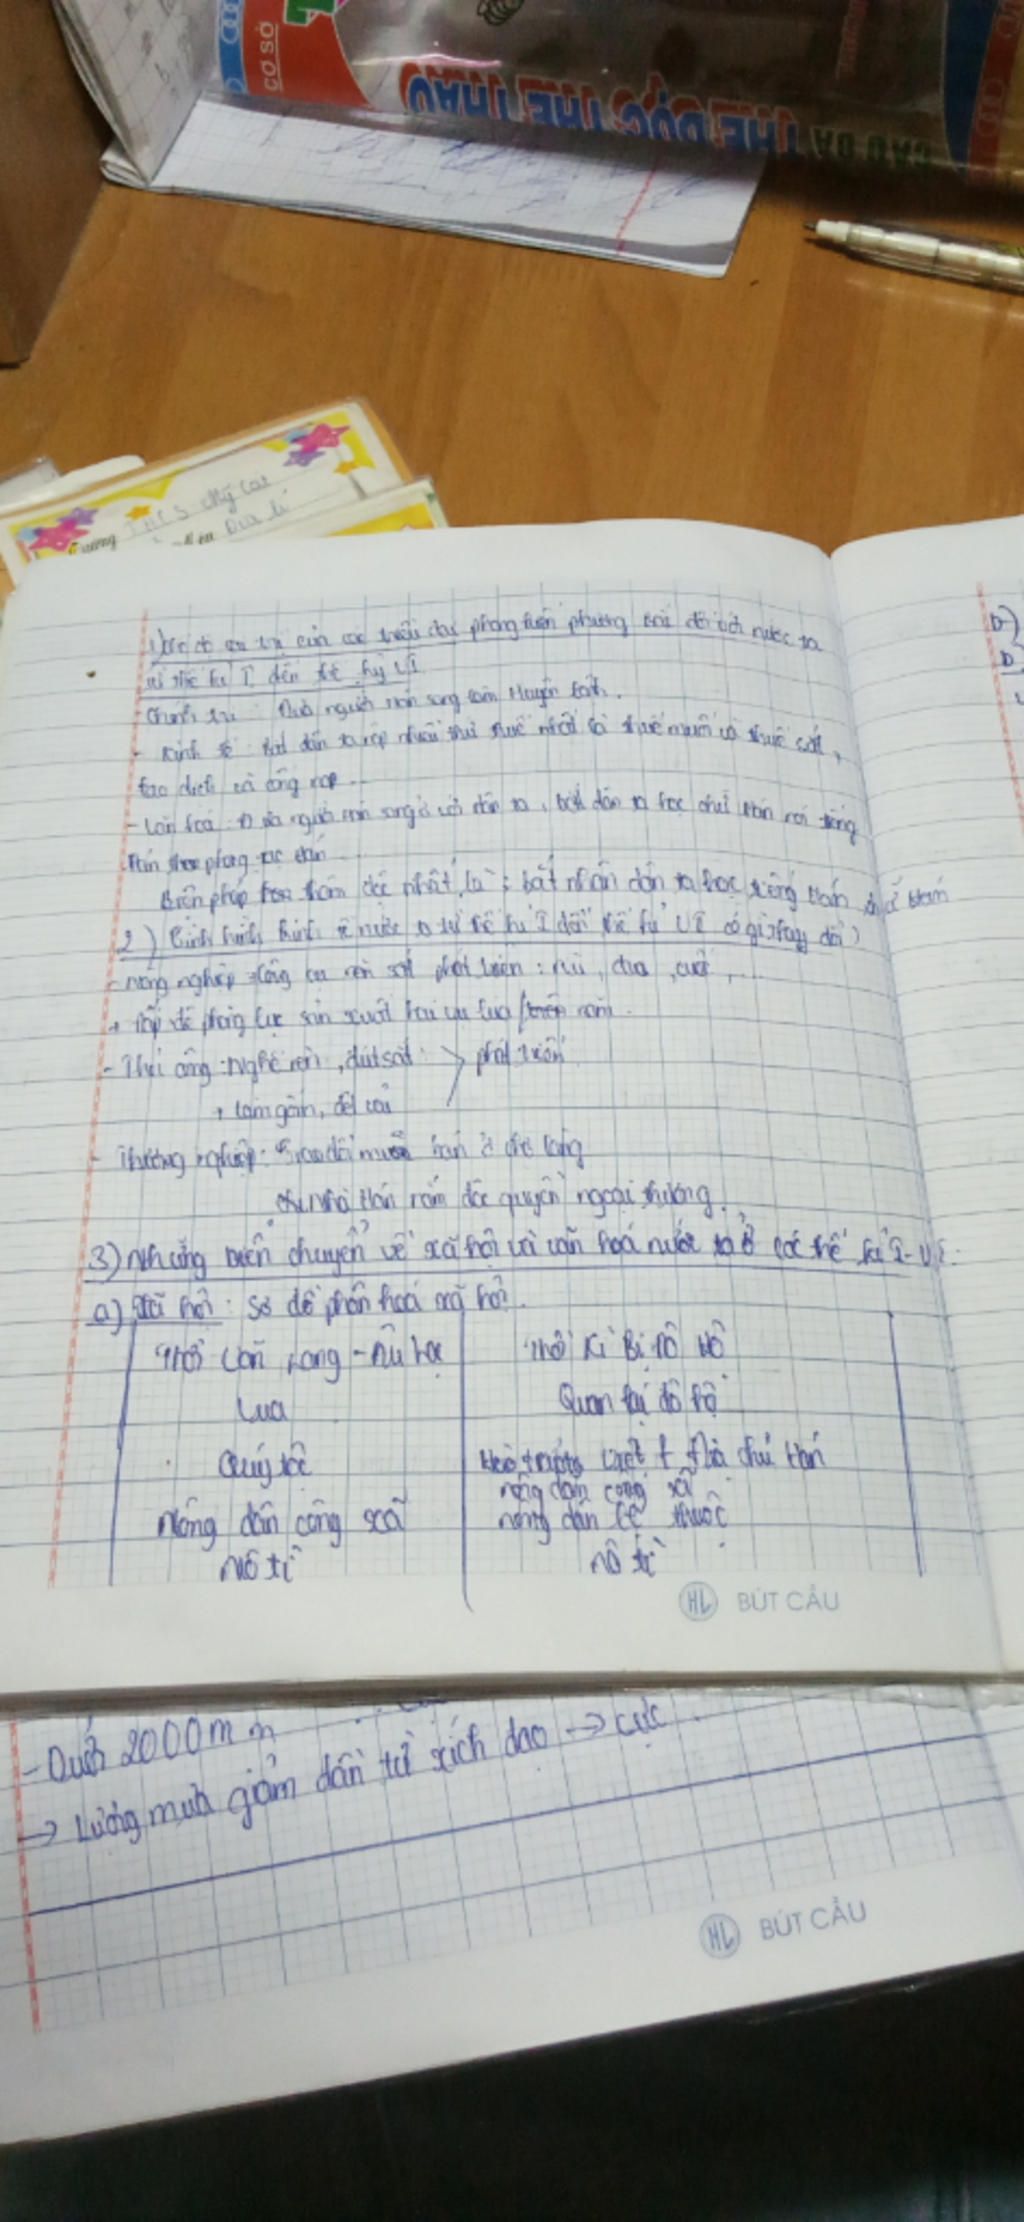 CƠ SỞ
CẦU ĐÁ THỂ DỤC THỂ THAO
THCS Mỹ
Địa lí
chế độ cai trị của các triều đại phong kiến phương Bắc đối với nước ta
từ thế kỉ I đến thế kỷ VI
- Chính trị: Đưa người Hán sang làm Huyện lệnh.
- Kinh tế: Bắt dân ta nộp nhiều thứ thuế nhất là thuế muối và thuế sắt,
lao dịch và cống nạp ...
- Văn hoá: đưa người Hán sang ở với dân ta, bắt dân ta học chữ Hán nói tiếng
Hán theo phong tục Hán
Biện pháp thâm độc nhất là: bắt nhân dân ta học tiếng Hán
2) Tình hình kinh tế nước ta từ thế kỉ I đến thế kỉ VI có gì thay đổi?
- Nông nghiệp công cụ rèn sắt phát triển: rìu, dao, cuốc, ...
+ đắp đê phòng lụt sản xuất hai vụ lúa trên năm.
- Thủ công: Nghề rèn, đúc sắt phát triển
+ Làm gốm, dệt vải
- Thương nghiệp: Trao đổi mua bán ở chợ làng
Nhà Hán nắm độc quyền ngoại thương.
3) Những biến chuyển về xã hội và văn hoá nước ta ở các thế kỉ I-VI.
a) Xã hội: Sơ đồ phân hoá xã hội.
Thời Văn Lang - Âu Lạc Thời Kì Bị Đô Hộ
Vua Quan lại đô hộ
Quý tộc Hào trưởng Việt + địa chủ Hán
nông dân công xã
Nông dân công xã nông dân lệ thuộc
Nô tì nô tì
HL BÚT CẦU
- Dưới 2000mm
→ Lượng mưa giảm dần từ xích đạo → cực.
HL BÚT CẦU
b)
b